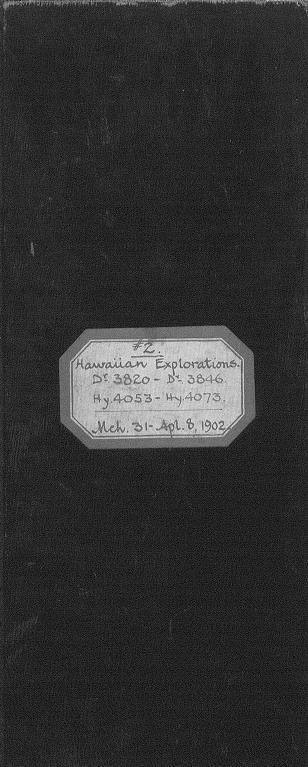 #2.
Hawaiian Explorations.
Dr. 3820 - Dr. 3846.
Hy. 4053 - Hy. 4073.
Mch. 31 - Apl. 8, 1902.